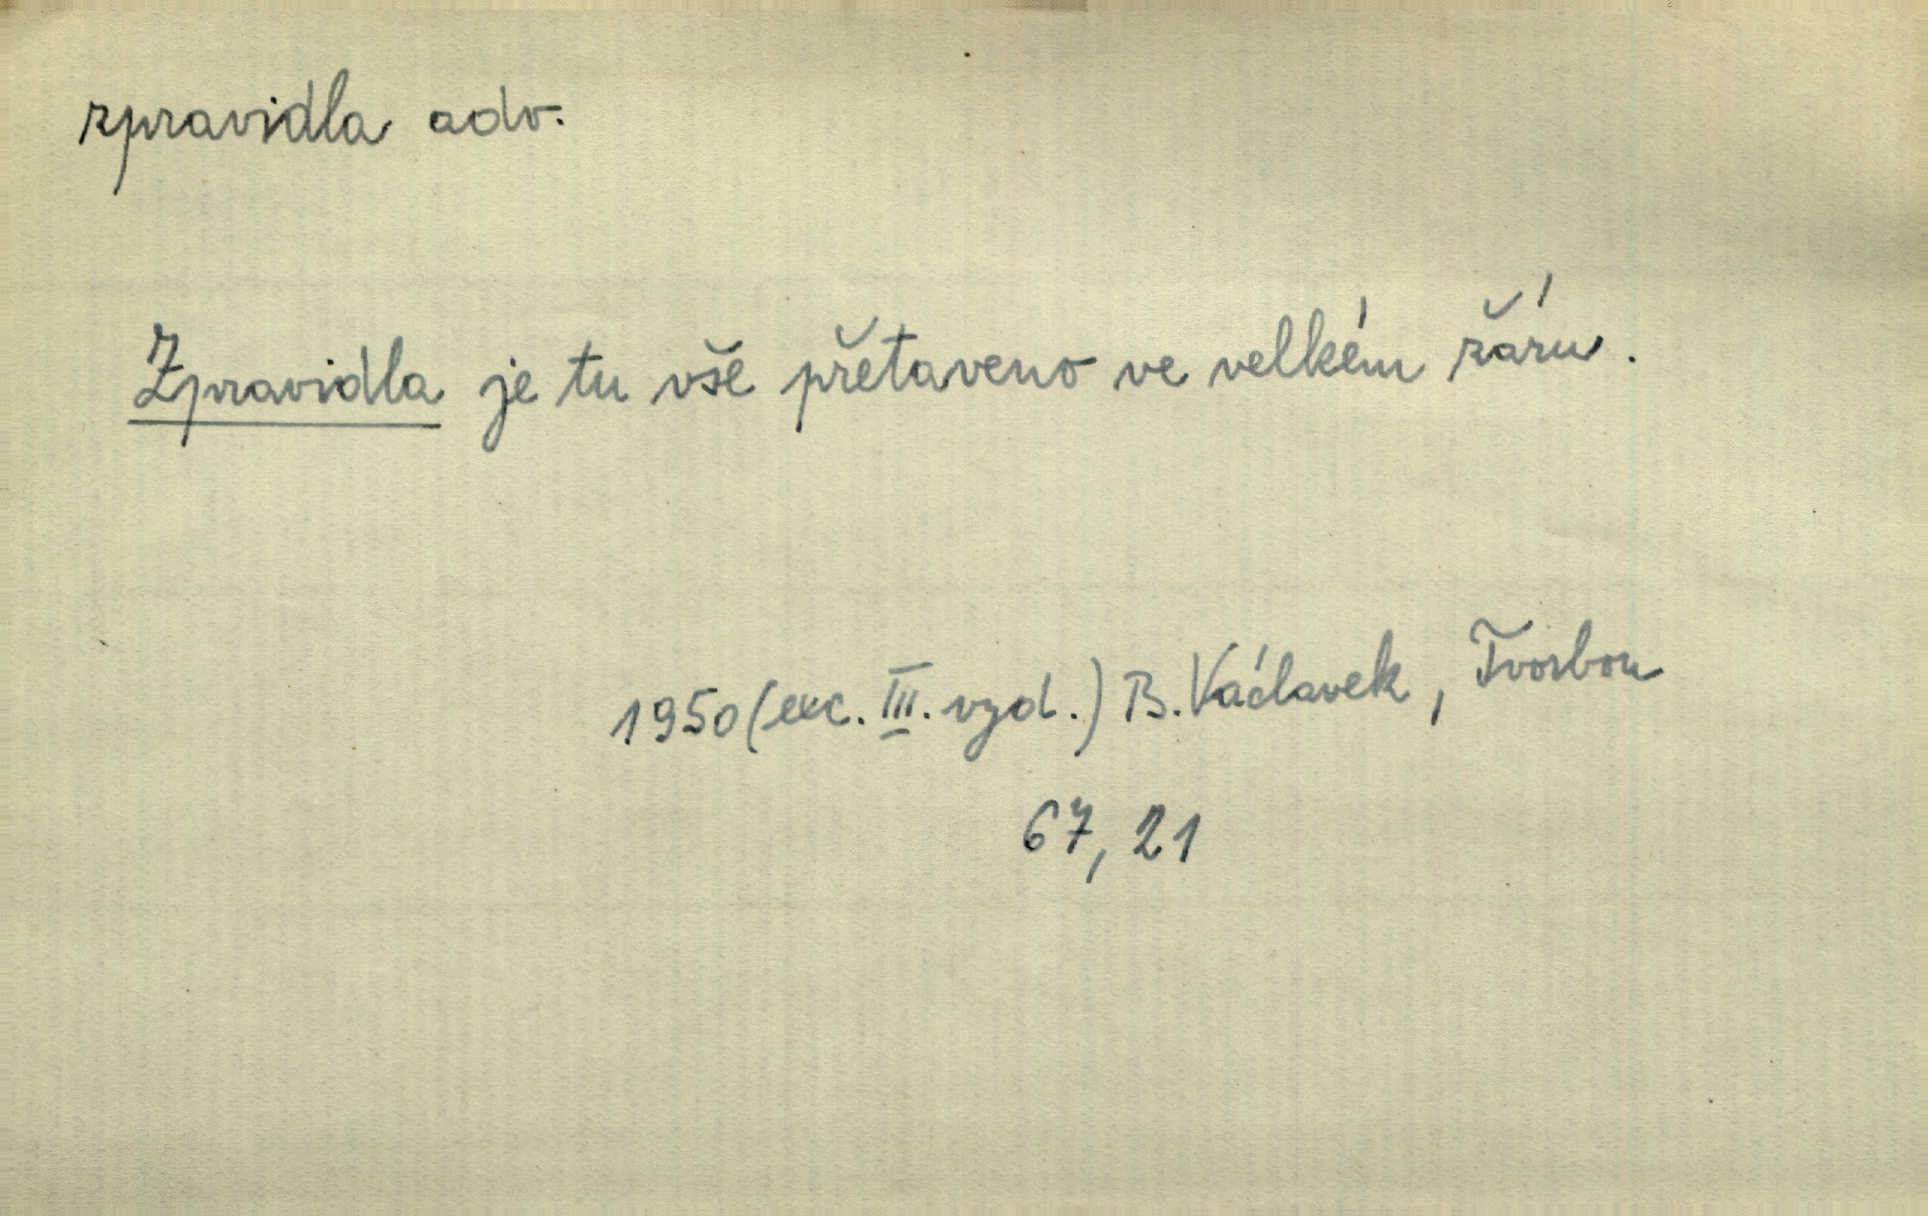 zpravidla adv.
Zpravidla je tu vše přetaveno ve velkém žáru.
1950 (exc. III. vyd.) B. Václavek, Tvorbou
67, 21